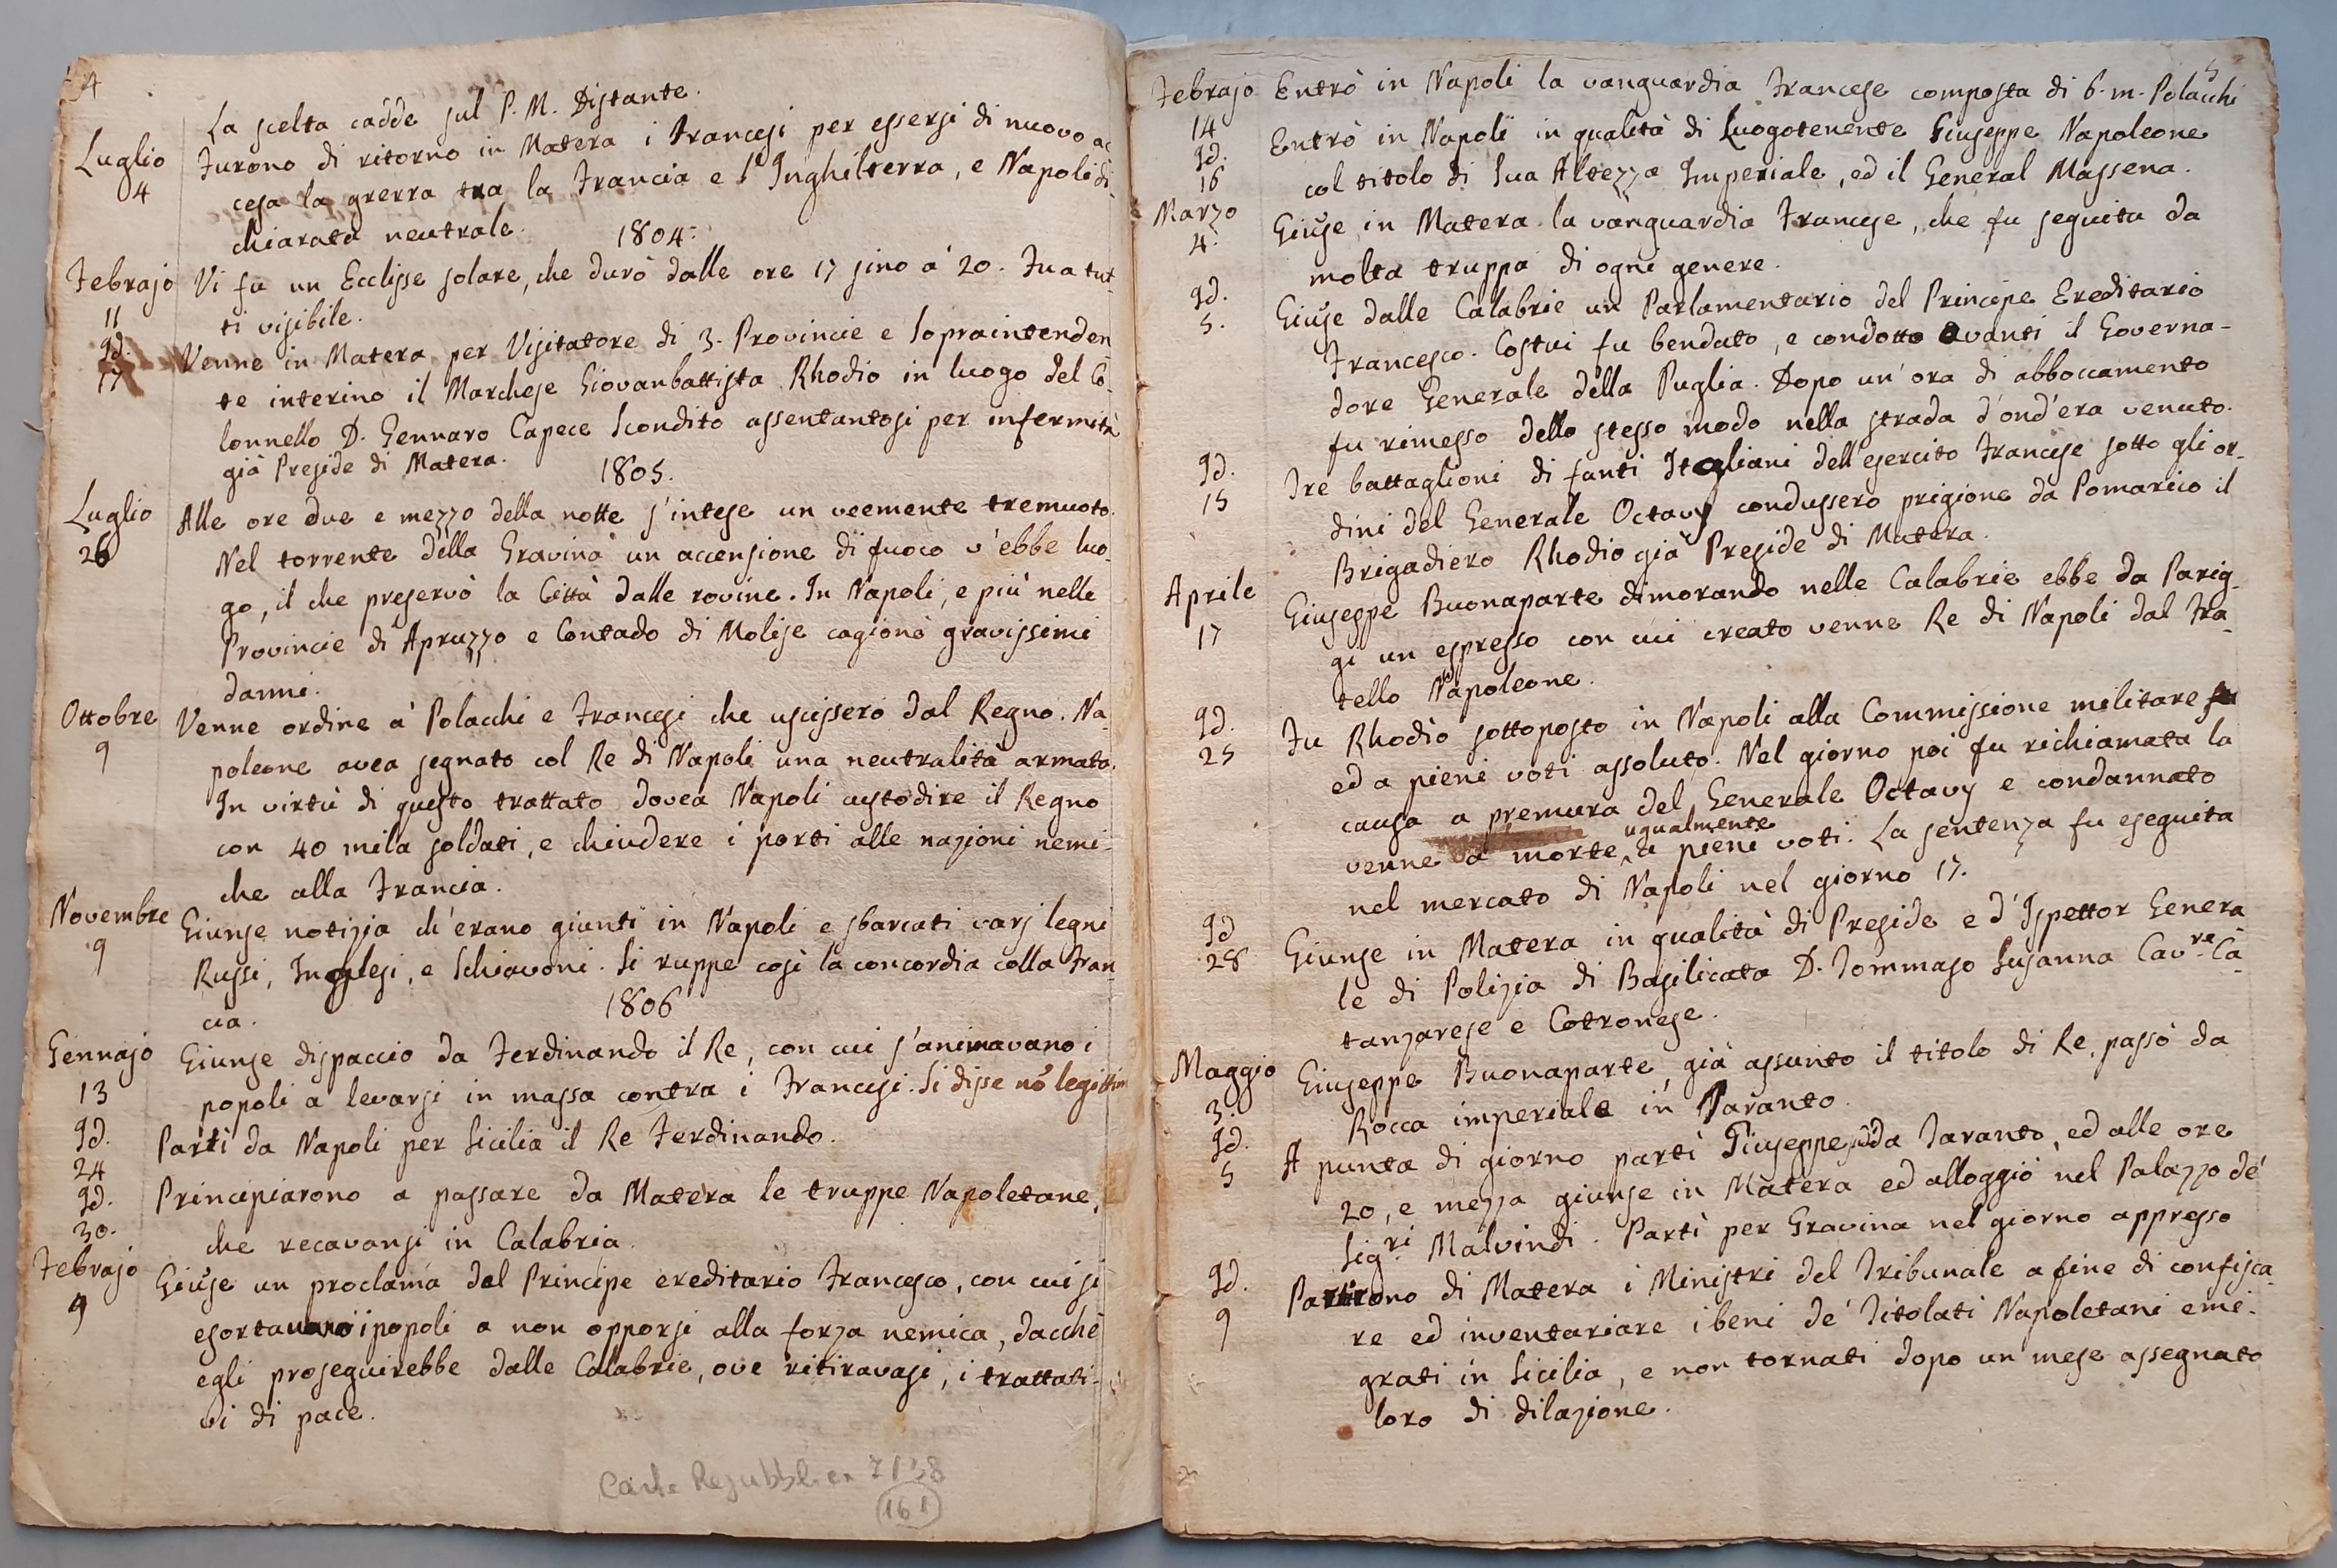 4
La scelta cadde sul P. M. Distante.
Luglio Furono di ritorno in Matera i Francesi per essersi di nuovo ac
4 cesa la grerra tra la Francia e l'Inghilterra, e Napoli di
chiarata neutrale.
1804.
Febrajo Vi fu un Ecclisse solare, che durò dalle ore 17 sino a' 20. Fu a tut-
11 ti visibile.
Id. Venne in Matera per Visitatore di 3. Provincie e Sopraintenden
17 te interino il Marchese Giovanbattista Rhodio in luogo del Co-
lonnello D. Gennaro Capece Scondito assentantosi per infermità
già Preside di Matera.
1805.
Luglio Alle ore due e mezzo della notte s'intese un veemente tremuoto.
26 Nel torrente della Gravina un accensione di fuoco v'ebbe luo-
go, il che preservò la Città dalle rovine. In Napoli, e più nelle
Provincie di Apruzzo e Contado di Molise cagionò gravissimi
danni.
Ottobre Venne ordine a' Polacchi e Francesi che uscissero dal Regno. Na-
9 poleone avea segnato col Re di Napoli una neutralità armata.
In virtù di questo trattato dovea Napoli custodire il Regno
con 40 mila soldati, e chiudere i porti alle nazioni nemi-
che alla Francia.
Novembre Giunse notizia ch'erano giunti in Napoli e sbarcati varj legni
9 Russi, Inglesi, e Schiavoni. Si ruppe così la concordia colla Fran
cia.
1806
Gennajo Giunse dispaccio da Ferdinando il Re, con cui s'animavano i
13 popoli a levarsi in massa contra i Francesi. Si disse nō legittim
Id. Partì da Napoli per Sicilia il Re Ferdinando.
24
Id. Principiarono a passare da Matera le truppe Napoletane,
30. che recavansi in Calabria.
Febrajo Giūse un proclama del Principe ereditario Francesco, con cui si
9 esortavano i popoli a non opporsi alla forza nemica, dacchè
egli proseguirebbe dalle Calabrie, ove ritiravasi, i trattati-
vi di pace.
161
5
Febrajo Entrò in Napoli la vanguardia Francese composta di 6. m. Polacchi
14
Id. Entrò in Napoli in qualità di Luogotenente Giuseppe Napoleone
16 col titolo di Sua Altezza Imperiale, ed il General Massena.
Marzo Giūse in Matera la vanguardia Francese, che fu seguita da
4. molta truppa di ogni genere.
Id. Giūse dalle Calabrie un Parlamentario del Principe Ereditario
5. Francesco. Costui fu bendato, e condotto avanti il Governa-
dore Generale della Puglia. Dopo un'ora di abboccamento
fu rimesso dello stesso modo nella strada d'ond'era venuto.
Id. Tre battaglioni di fanti Italiani dell'esercito Francese sotto gli or-
15 dini del Generale Octavy condussero prigione da Pomarico il
Brigadiero Rhodio già Preside di Matera.
Aprile Giuseppe Buonaparte dimorando nelle Calabrie ebbe da Parig-
17 gi un espresso con cui creato venne Re di Napoli dal Fra-
tello Napoleone.
Id. Fu Rhodio sottoposto in Napoli alla Commissione militare
25 ed a pieni voti assoluto. Nel giorno poi fu richiamata la
causa a premura del Generale Octavy e condannato
venne a morte, ugualmente a pieni voti. La sentenza fu eseguita
nel mercato di Napoli nel giorno 17.
Id Giunse in Matera in qualità di Preside e d'Ispettor Genera
28 le di Polizia di Basilicata D. Tommaso Susanna Cav.re Ca-
tanzarese e Cotronese.
Maggio Giuseppe Buonaparte, già assunto il titolo di Re, passò da
3. Rocca imperiale in Taranto.
Id. A punta di giorno partì Giuseppe da Taranto, ed alle ore
5 20, e mezza giunse in Matera ed alloggiò nel Palazzo de'
Sig.ri Malvindi. Partì per Gravina nel giorno appresso
Id. Partirono di Matera i Ministri del Tribunale a fine di confisca-
9 re ed inventariare i beni de' Titolati Napoletani emi-
grati in Sicilia, e non tornati dopo un mese assegnato
loro di dilazione.